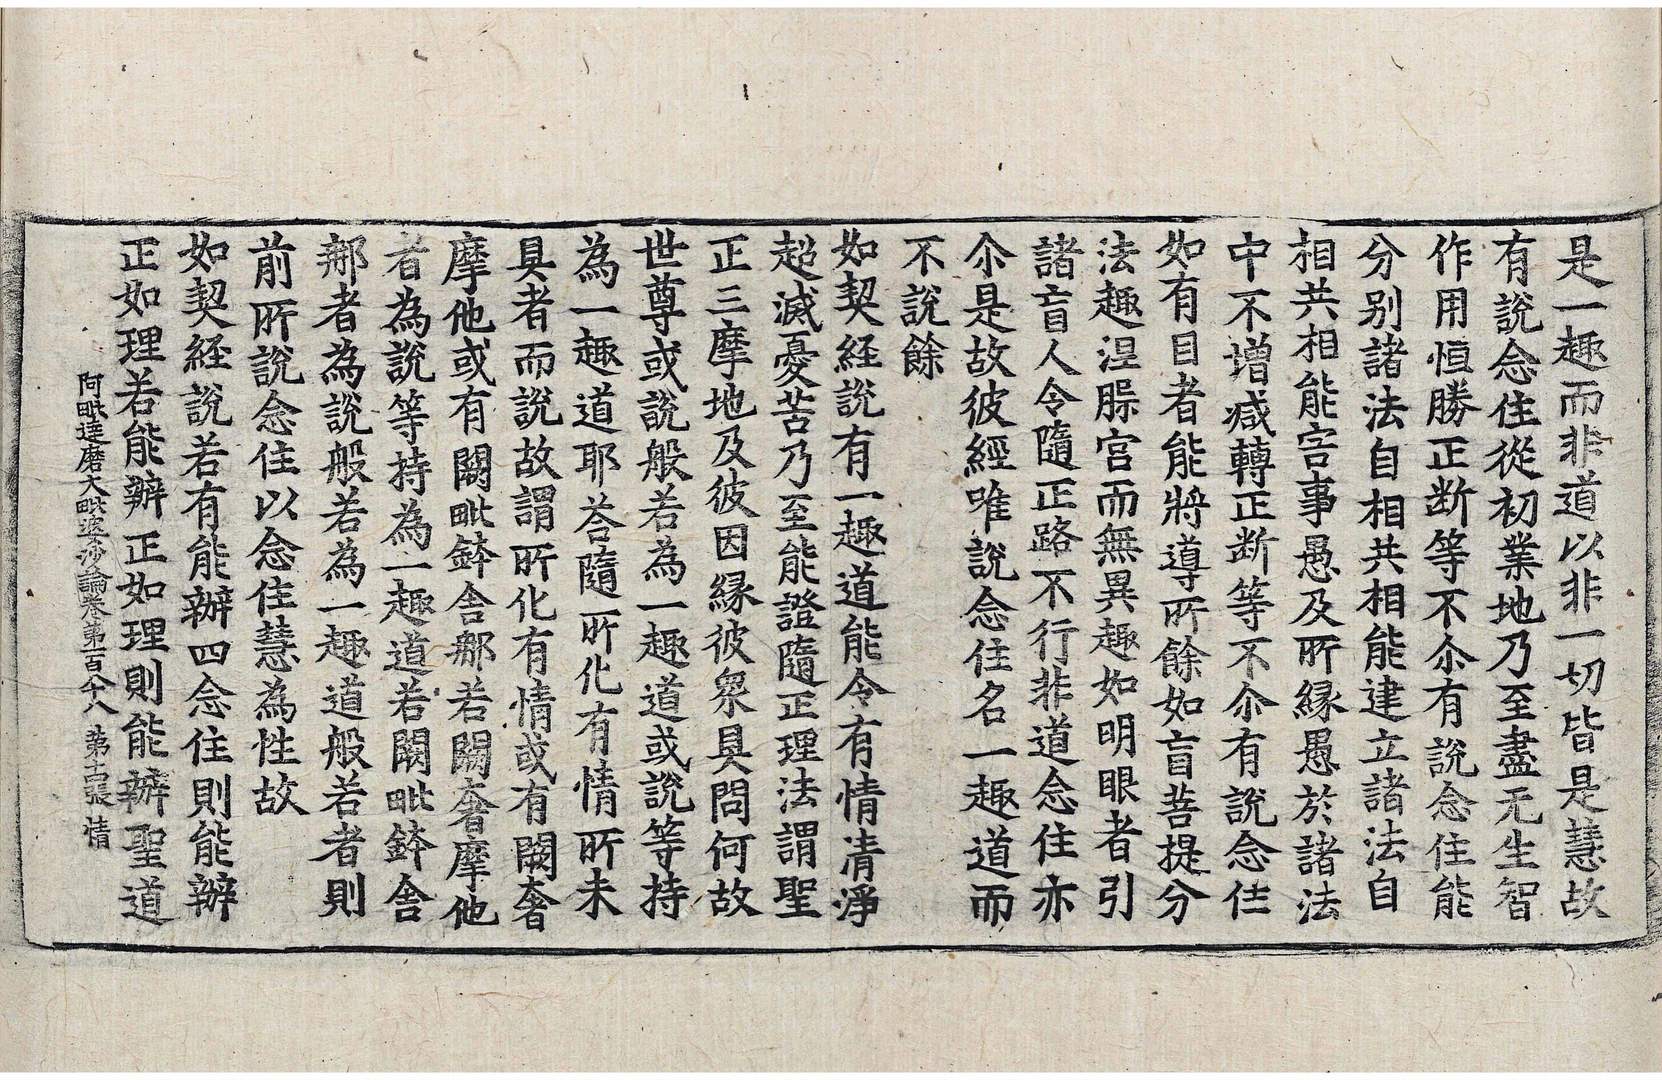 是一趣而非道以非一切皆是慧故
有說念住從初業地乃至盡无生智
作用恒勝正断等不尒有說念住能
分别諸法自相共相能建立諸法自
相共相能害事愚及所縁愚於諸法
中不增減轉正断等不尒有說念住
如有目者能將導所餘如盲菩提分
法趣涅槃宮而無異趣如明眼者引
諸盲人令隨正路不行非道念住亦
尒是故彼經唯說念住名一趣道而
不說餘
如契経說有一趣道能令有情清淨
超滅憂苦乃至能證隨正理法謂聖
正三摩地及彼因縁彼衆具問何故
世尊或說般若為一趣道或說等持
為一趣道耶荅隨所化有情所未
具者而說故謂所化有情或有闕奢
摩他或有闕毗鉢舍那若闕奢摩他
者為說等持為一趣道若闕毗鉢舍
那者為說般若為一趣道般若者則
前所說念住以念住慧為性故
如契経說若有能辦四念住則能辦
正如理若能辦正如理則能辦聖道
阿毗達磨大毗婆沙論卷第一百八十八 第十四張 情